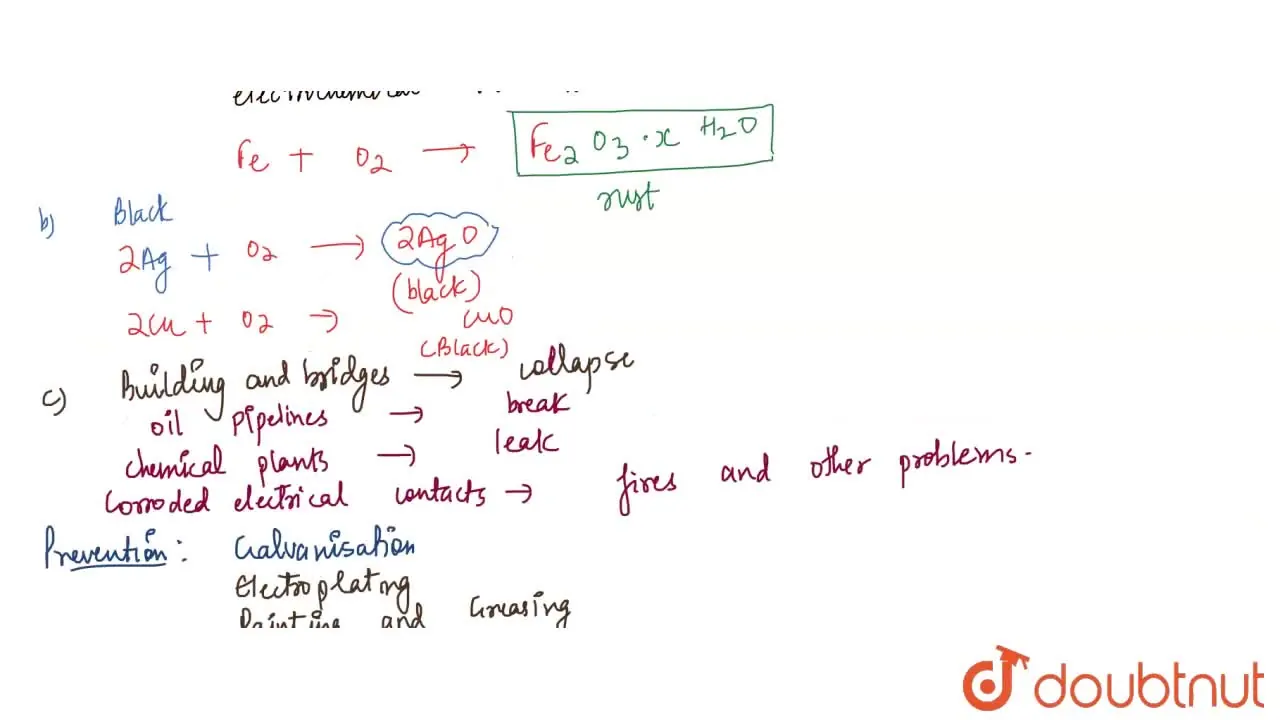 electrochemical
Fe + O2 → Fe2 O3 · x H2O
rust
b) Black
2Ag + O2 → 2Ag O
(black)
2Cu + O2 → CuO
(Black)
c) Building and bridges → collapse
oil pipelines → break
chemical plants → leak
Corroded electrical contacts → fires and other problems.
Prevention: Galvanisation
Electroplating
Painting and Greasing
doubtnut